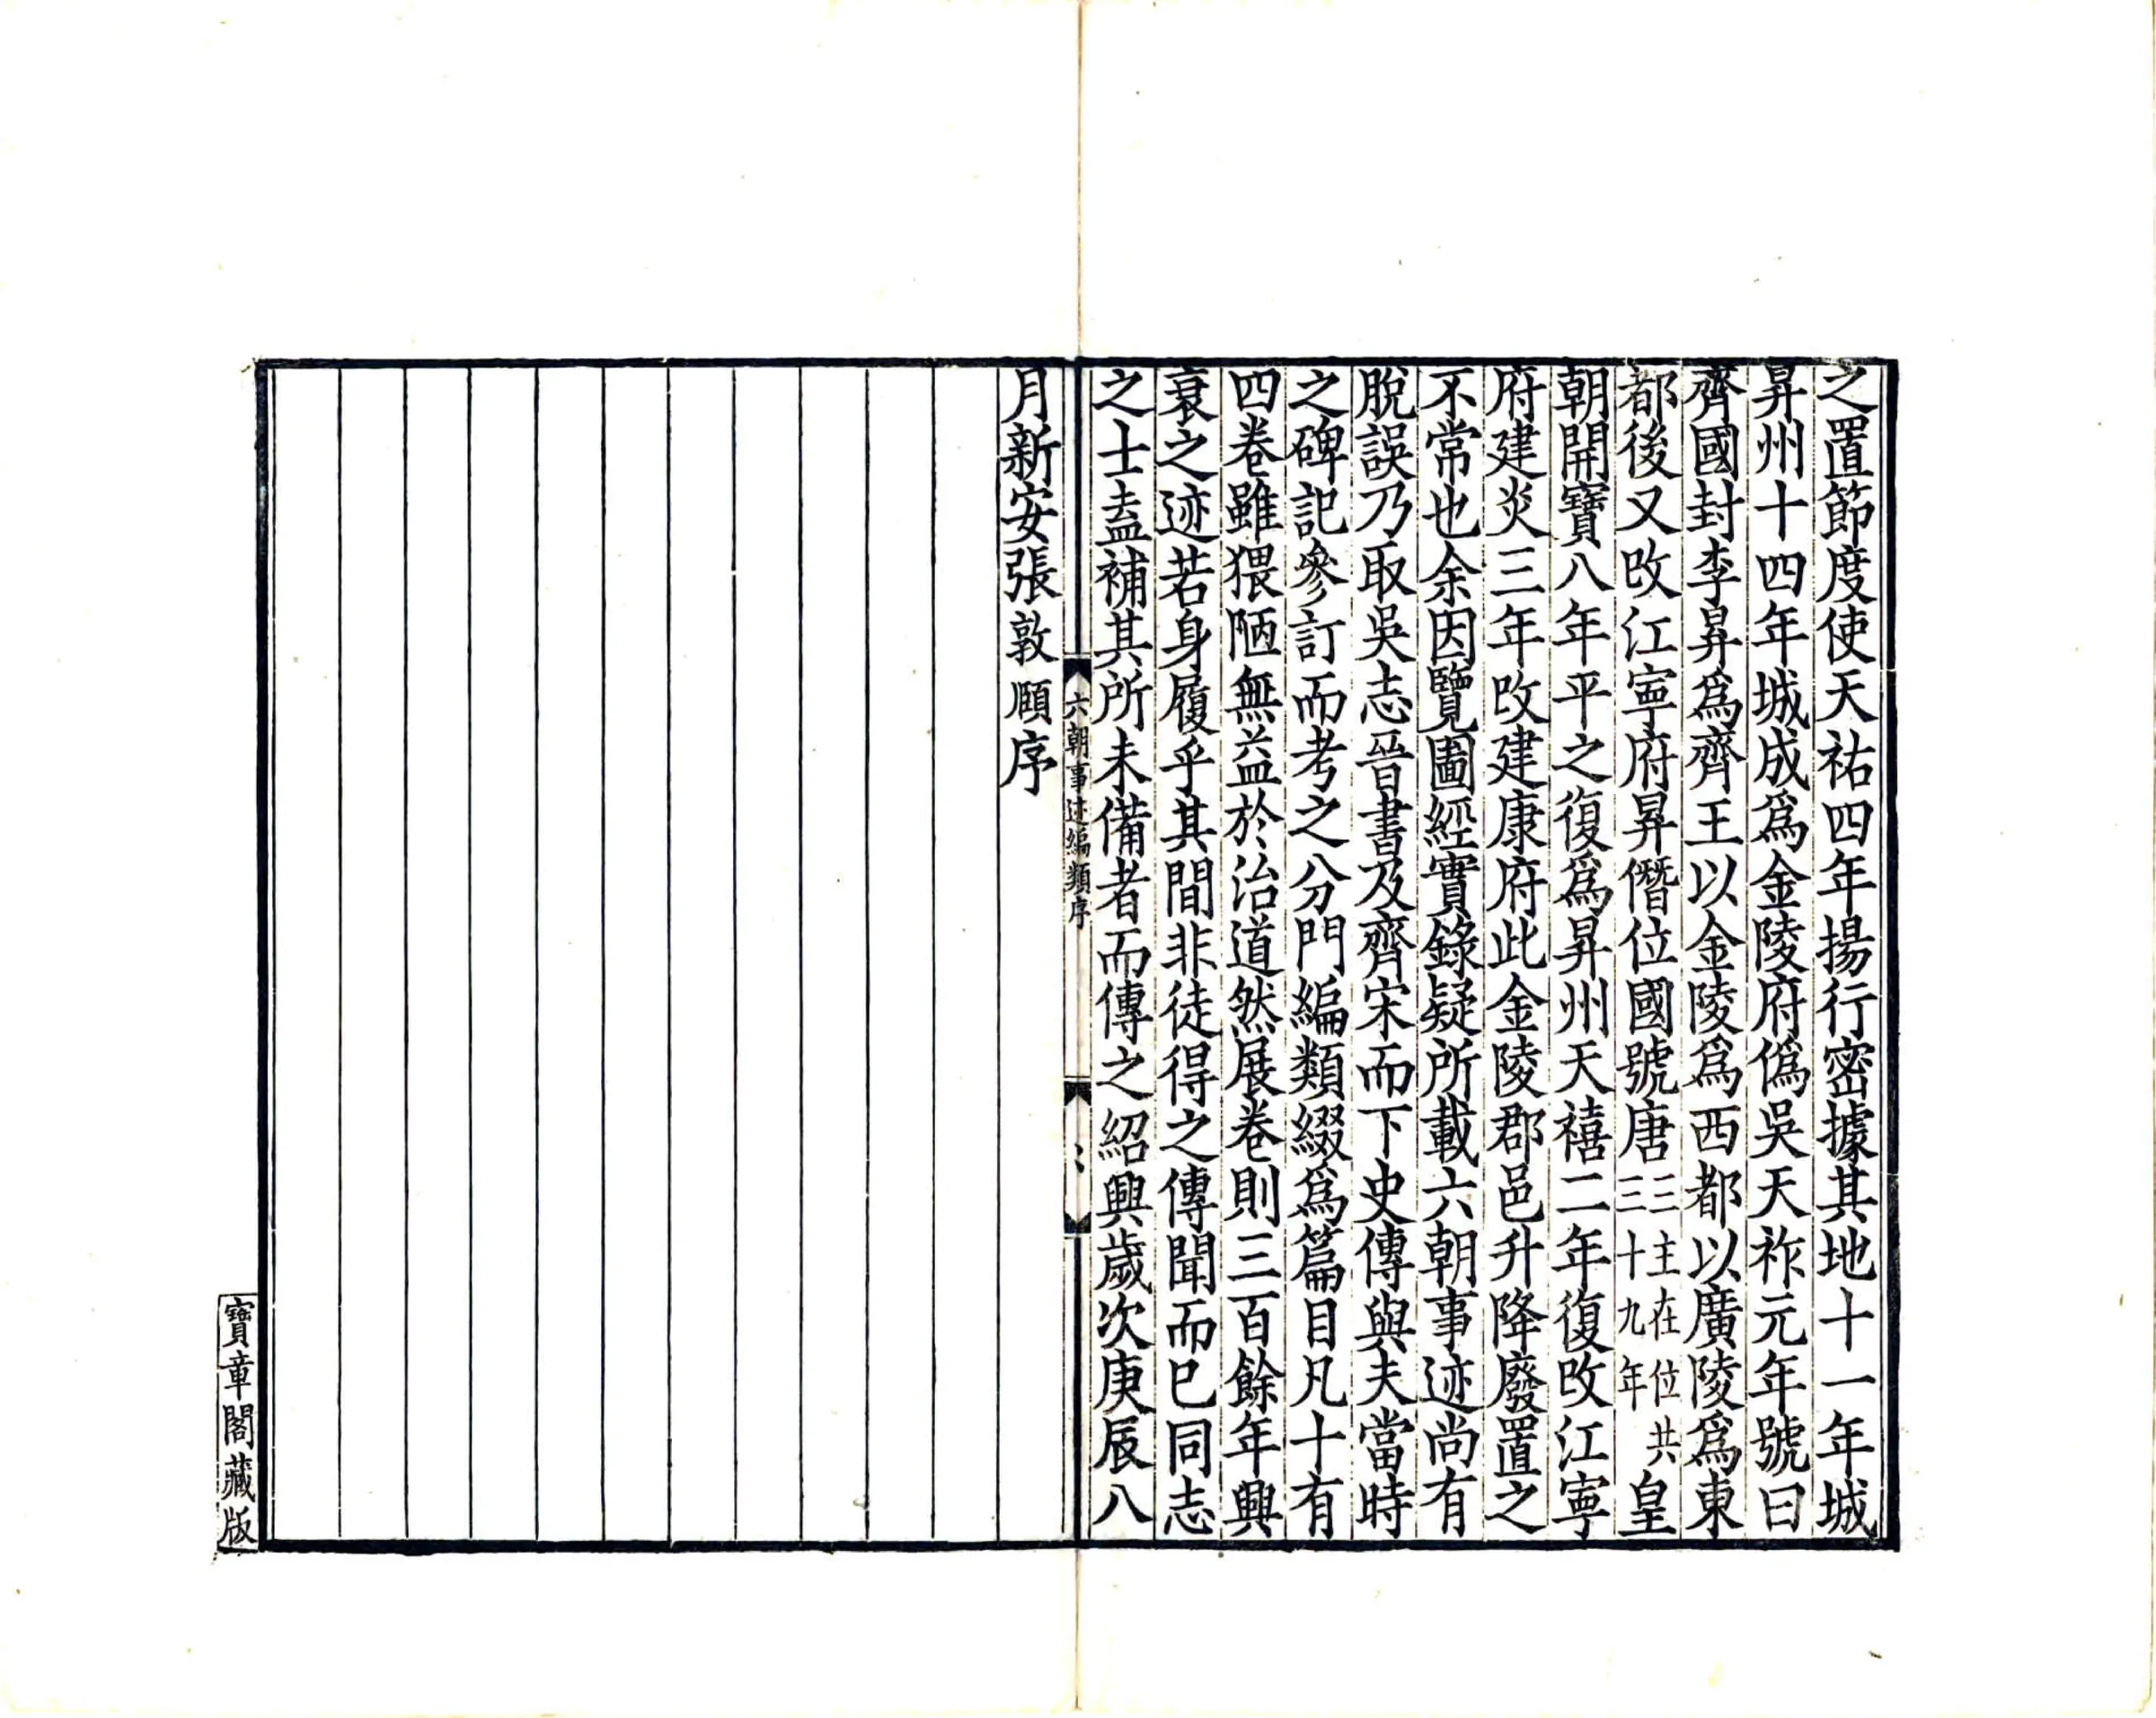 之置節度使天祐四年揚行密據其地十一年城
昇州十四年城成爲金陵府僞吳天祚元年號曰
齊國封李昇爲齊王以金陵爲西都以廣陵爲東
都後又改江寧府昇僭位國號唐三主在位共三十九年皇
朝開寶八年平之復爲昇州天禧二年復改江寧
府建炎三年改建康府此金陵郡邑升降廢置之
不常也余因覽圖經實錄疑所載六朝事迹尚有
脫誤乃取吳志晉書及齊宋而下史傳與夫當時
之碑記參訂而考之分門編類綴爲篇目凡十有
四卷雖猥陋無益於治道然展卷則三百餘年興
衰之迹若身履乎其間非徒得之傳聞而已同志
之士盍補其所未備者而傳之紹興歲次庚辰八
六朝事迹編類序
月新安張敦頤序
寶章閣藏版